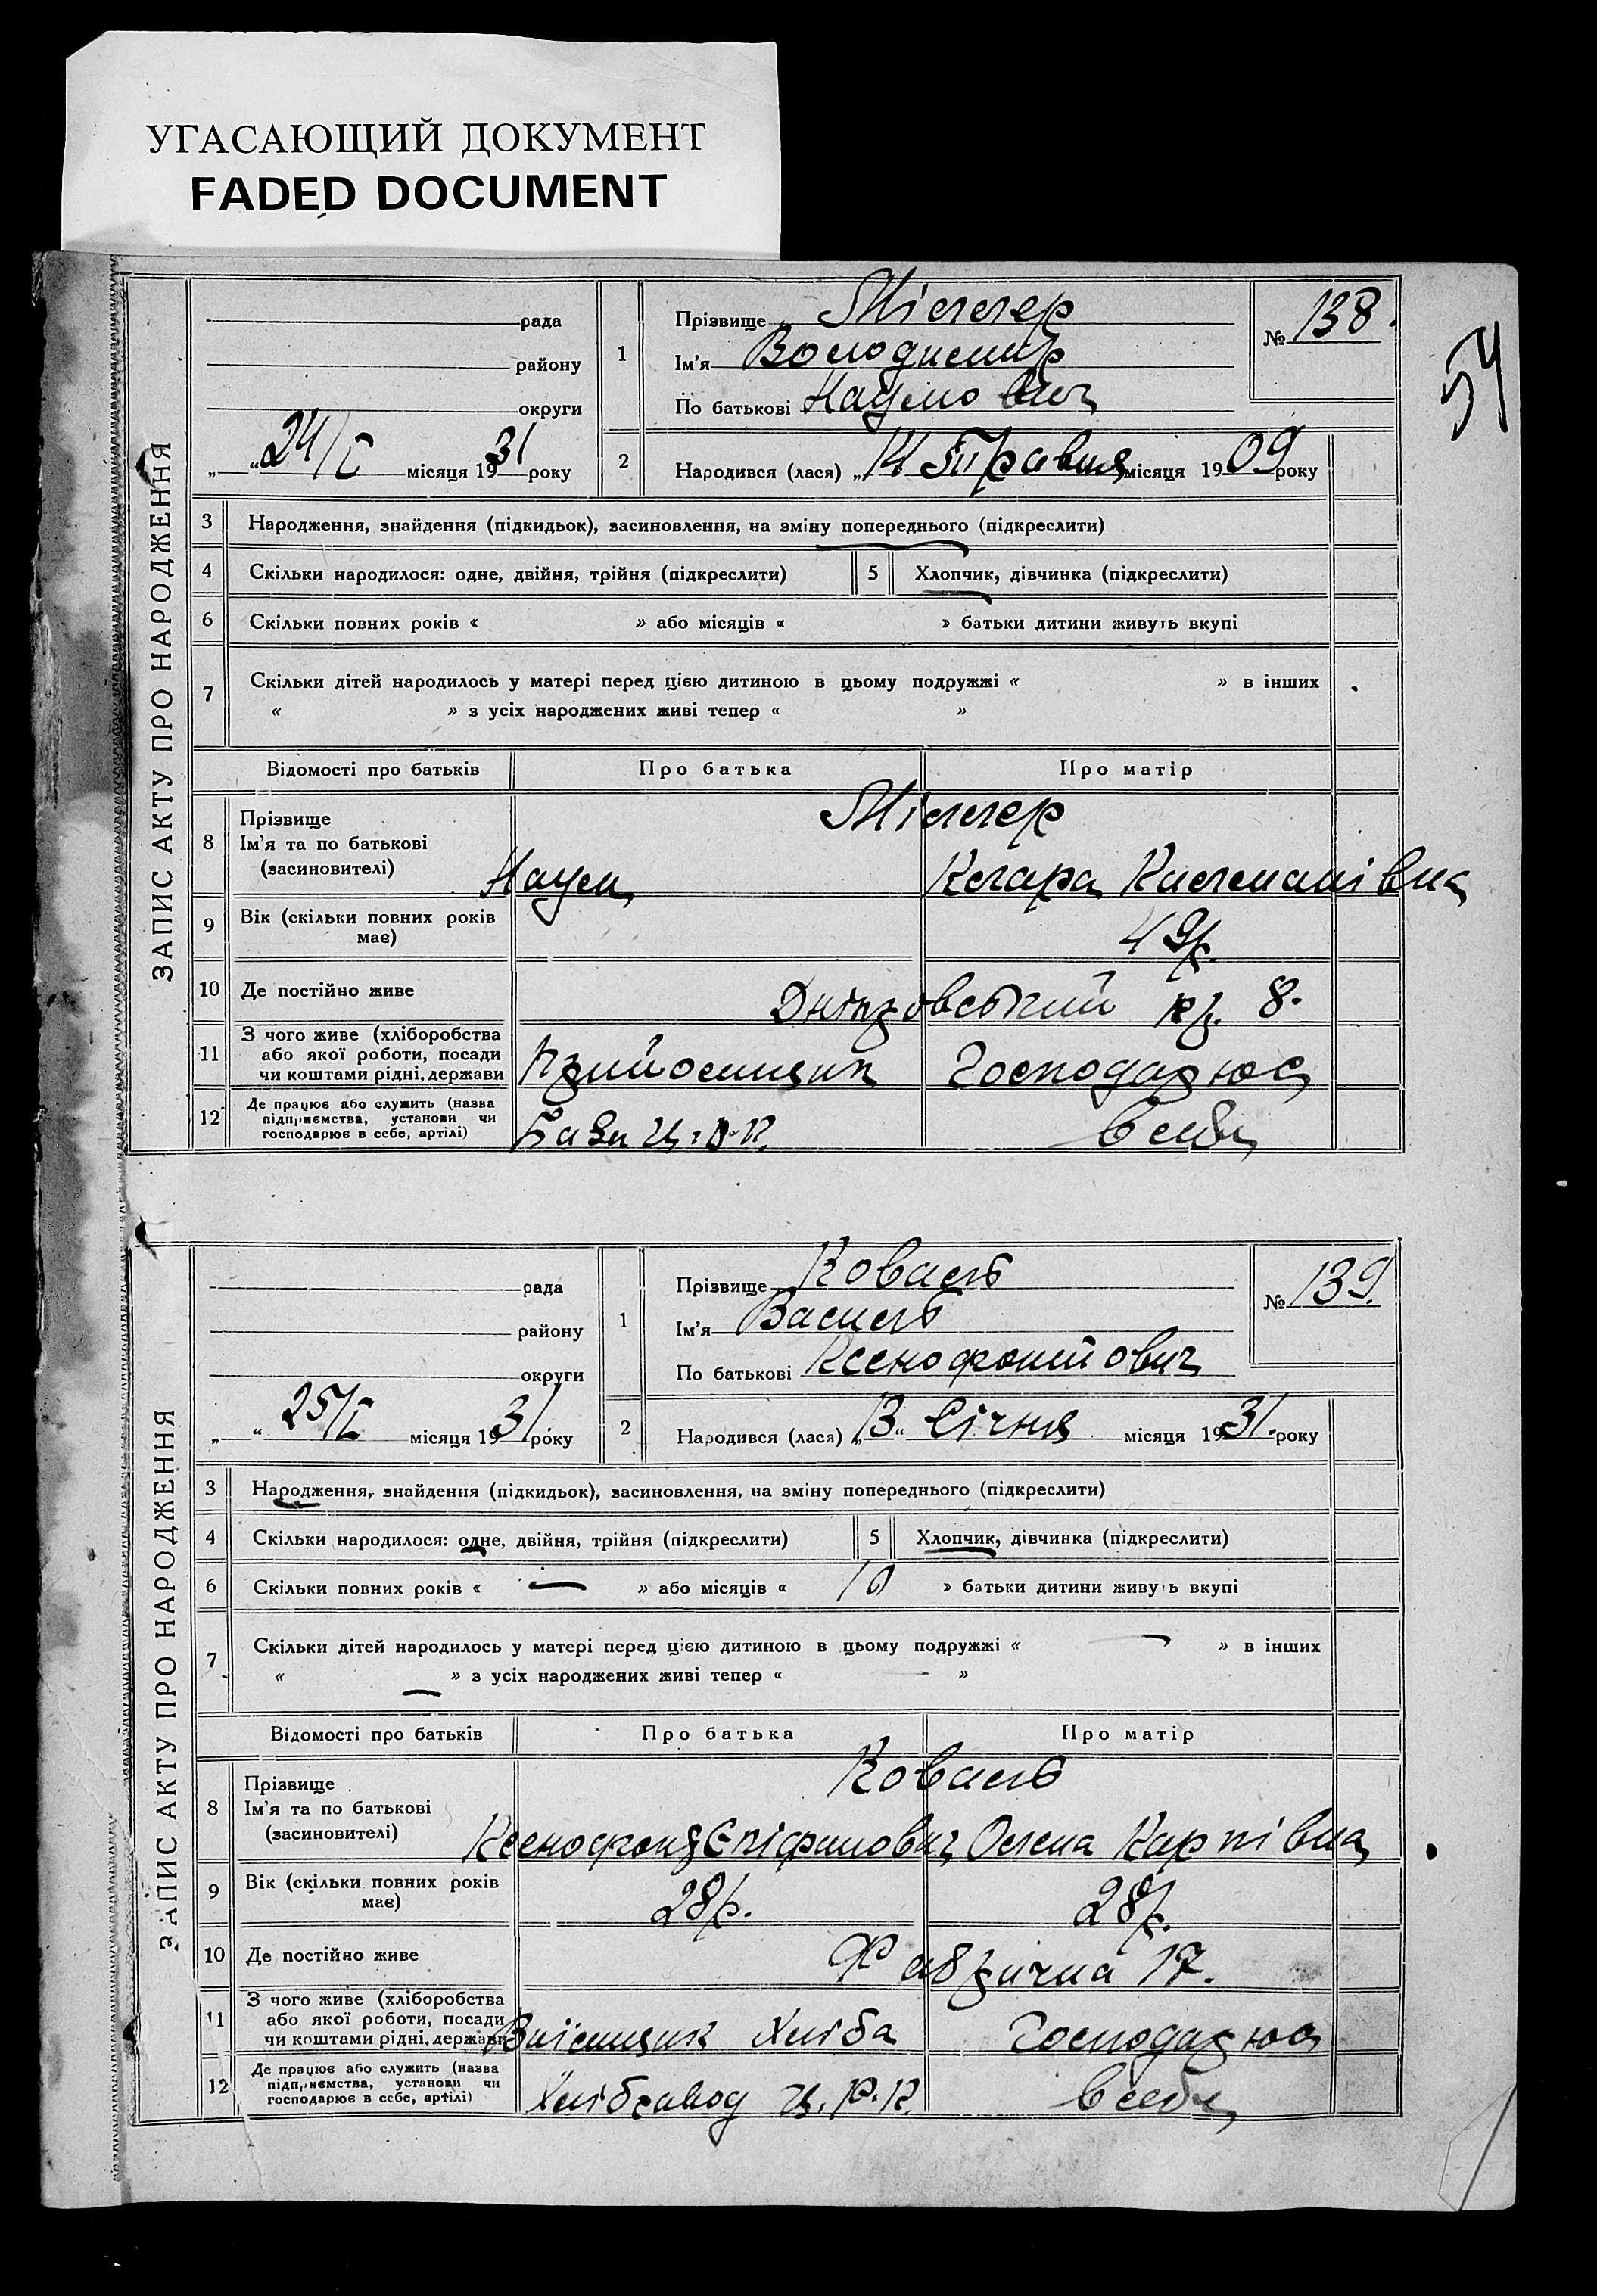 УГАСАЮЩИЙ ДОКУМЕНТ
FADED DOCUMENT
54
ЗАПИС АКТУ ПРО НАРОДЖЕННЯ
рада
району
округи
„ “ 24/I місяця 1931 року
1 Прізвище Міллер
Ім'я Володимир
По батькові Наумович
№ 138.
2 Народився (лася) „14 Травня місяця 1909 року
3 Народження, знайдення (підкидьок), засиновлення, на зміну попереднього (підкреслити)
4 Скільки народилося: одне, двійня, трійня (підкреслити) 5 Хлопчик, дівчинка (підкреслити)
6 Скільки повних років « » або місяців « » батьки дитини живуть вкупі
7 Скільки дітей народилось у матері перед цією дитиною в цьому подружжі « » в інших
« » з усіх народжених живі тепер « »
Відомості про батьків Про батька Про матір
8 Прізвище Міллер
Ім'я та по батькові
(засновителі) Наум Клара
9 Вік (скільки повних років має) 49р.
10 Де постійно живе 8.
11 З чого живе (хліборобства
або якої роботи, посади
чи коштами рідні, держави Прийомщик Господарює
12 Де працює або служить (назва
підприємства, установи чи
господарює в себе, артілі) База Ц.Р.К. в себе
ЗАПИС АКТУ ПРО НАРОДЖЕННЯ
рада
району
округи
„ “ 25/I місяця 1931 року
1 Прізвище Коваль
Ім'я Василь
По батькові Ксенофонтович
№ 139.
2 Народився (лася) „13“ Січня місяця 1931. року
3 Народження, знайдення (підкидьок), засиновлення, на зміну попереднього (підкреслити)
4 Скільки народилося: одне, двійня, трійня (підкреслити) 5 Хлопчик, дівчинка (підкреслити)
6 Скільки повних років « — » або місяців « 10 » батьки дитини живуть вкупі
7 Скільки дітей народилось у матері перед цією дитиною в цьому подружжі « — » в інших
« — » з усіх народжених живі тепер « »
Відомості про батьків Про батька Про матір
8 Прізвище Коваль
Ім'я та по батькові
(засиновителі) Ксенофонд Єпіфанович Олена Карпівна
9 Вік (скільки повних років має) 28р. 28р.
10 Де постійно живе Фабрична 17.
11 З чого живе (хліборобства
або якої роботи, посади
чи коштами рідні, держави Хліба Господарює
12 Де працює або служить (назва
підприємства, установи чи
господарює в себе, артілі) Хлібзавод Ц.Р.К. в себе